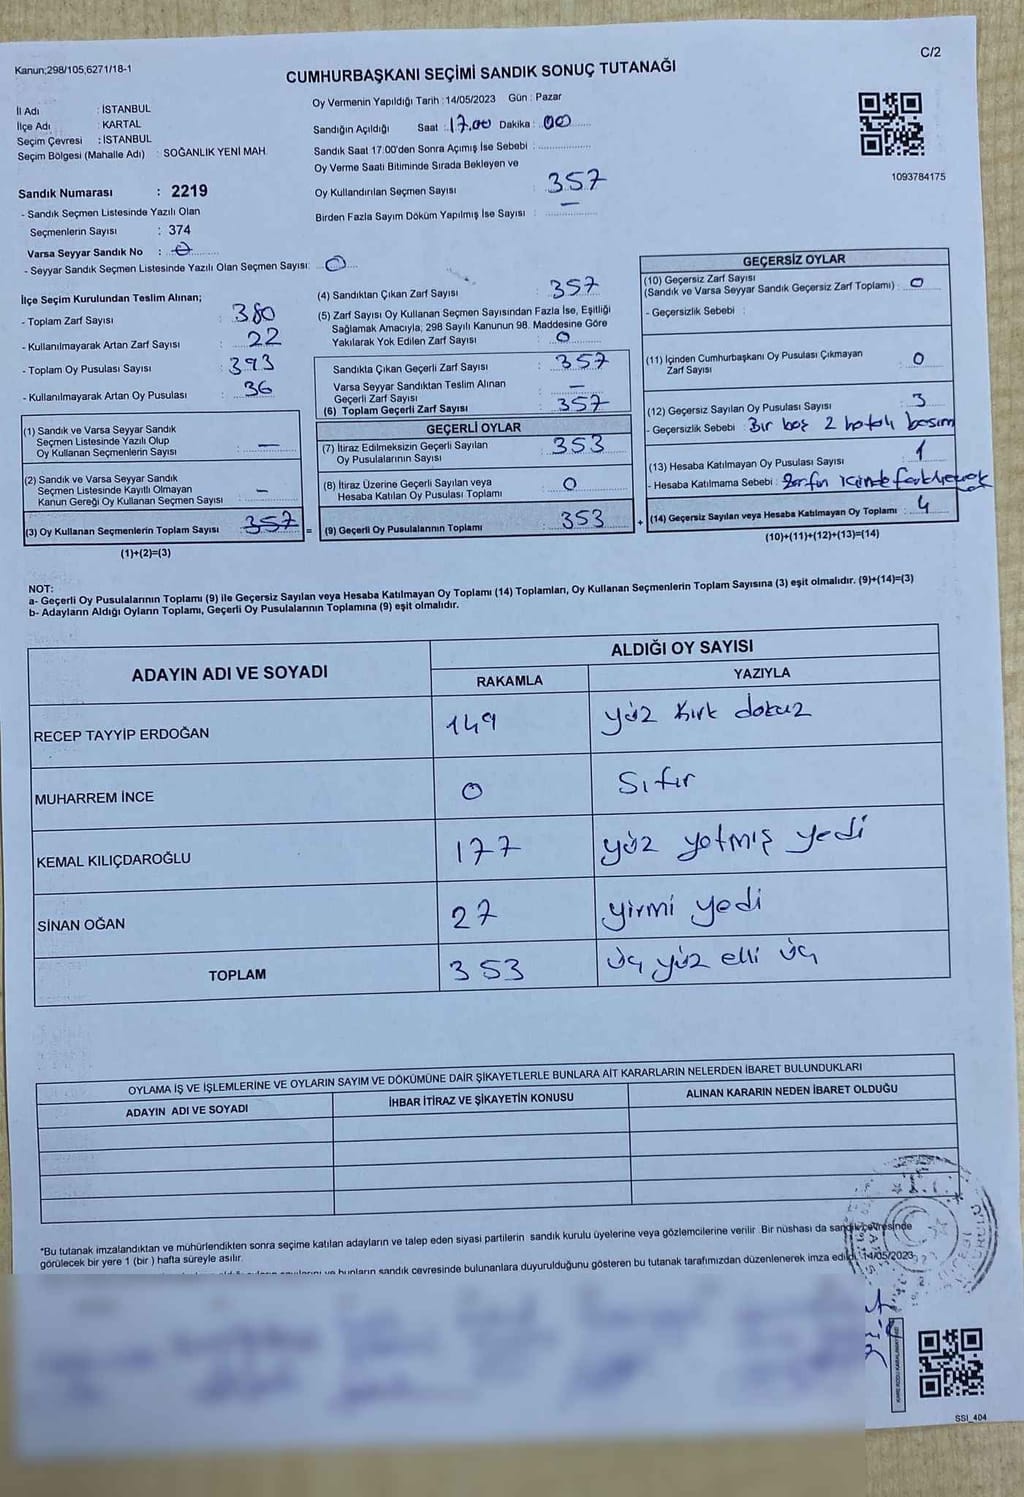 C/2
Kanun;298/105,6271/18-1
CUMHURBAŞKANI SEÇİMİ SANDIK SONUÇ TUTANAĞI
İl Adı : İSTANBUL
İlçe Adı : KARTAL
Seçim Çevresi : İSTANBUL
Seçim Bölgesi (Mahalle Adı) : SOĞANLIK YENİ MAH.
Oy Vermenin Yapıldığı Tarih : 14/05/2023 Gün : Pazar
Sandığın Açıldığı Saat : 17.00 Dakika : 00
Sandık Saat 17:00'den Sonra Açımış İse Sebebi :
Oy Verme Saati Bitiminde Sırada Bekleyen ve
Oy Kullandırılan Seçmen Sayısı : 357
Birden Fazla Sayım Döküm Yapılmış İse Sayısı : —
1093784175
Sandık Numarası : 2219
- Sandık Seçmen Listesinde Yazılı Olan
Seçmenlerin Sayısı : 374
Varsa Seyyar Sandık No : 0
- Seyyar Sandık Seçmen Listesinde Yazılı Olan Seçmen Sayısı: 0
İlçe Seçim Kurulundan Teslim Alınan;
- Toplam Zarf Sayısı : 380
- Kullanılmayarak Artan Zarf Sayısı : 22
- Toplam Oy Pusulası Sayısı : 393
- Kullanılmayarak Artan Oy Pusulası : 36
(1) Sandık ve Varsa Seyyar Sandık
Seçmen Listesinde Yazılı Olup
Oy Kullanan Seçmenlerin Sayısı : —
(2) Sandık ve Varsa Seyyar Sandık
Seçmen Listesinde Kayıtlı Olmayan
Kanun Gereği Oy Kullanan Seçmen Sayısı : —
(3) Oy Kullanan Seçmenlerin Toplam Sayısı : 357 =
(1)+(2)=(3)
(4) Sandıktan Çıkan Zarf Sayısı : 357
(5) Zarf Sayısı Oy Kullanan Seçmen Sayısından Fazla İse, Eşitliği
Sağlamak Amacıyla, 298 Sayılı Kanunun 98. Maddesine Göre
Yakılarak Yok Edilen Zarf Sayısı : 0
Sandıkta Çıkan Geçerli Zarf Sayısı : 357
Varsa Seyyar Sandıktan Teslim Alınan
Geçerli Zarf Sayısı : —
(6) Toplam Geçerli Zarf Sayısı : 357
GEÇERLİ OYLAR
(7) İtiraz Edilmeksizin Geçerli Sayılan
Oy Pusulalarının Sayısı : 353
(8) İtiraz Üzerine Geçerli Sayılan veya
Hesaba Katılan Oy Pusulası Toplamı : 0
(9) Geçerli Oy Pusulalarının Toplamı : 353 +
GEÇERSİZ OYLAR
(10) Geçersiz Zarf Sayısı
(Sandık ve Varsa Seyyar Sandık Geçersiz Zarf Toplamı) : 0
- Geçersizlik Sebebi :
(11) İçinden Cumhurbaşkanı Oy Pusulası Çıkmayan
Zarf Sayısı : 0
(12) Geçersiz Sayılan Oy Pusulası Sayısı : 3
- Geçersizlik Sebebi : Bir boş 2 hatalı basım
(13) Hesaba Katılmayan Oy Pusulası Sayısı : 1
- Hesaba Katılmama Sebebi : Zarfın içinde
(14) Geçersiz Sayılan veya Hesaba Katılmayan Oy Toplamı : 4
(10)+(11)+(12)+(13)=(14)
NOT:
a- Geçerli Oy Pusulalarının Toplamı (9) ile Geçersiz Sayılan veya Hesaba Katılmayan Oy Toplamı (14) Toplamları, Oy Kullanan Seçmenlerin Toplam Sayısına (3) eşit olmalıdır. (9)+(14)=(3)
b- Adayların Aldığı Oyların Toplamı, Geçerli Oy Pusulalarının Toplamına (9) eşit olmalıdır.
ADAYIN ADI VE SOYADI
ALDIĞI OY SAYISI
RAKAMLA YAZIYLA
RECEP TAYYİP ERDOĞAN 149 yüz kırk dokuz
MUHARREM İNCE 0 Sıfır
KEMAL KILIÇDAROĞLU 177 yüz yetmiş yedi
SİNAN OĞAN 27 yirmi yedi
TOPLAM 353 üç yüz elli üç
OYLAMA İŞ VE İŞLEMLERİNE VE OYLARIN SAYIM VE DÖKÜMÜNE DAİR ŞİKAYETLERLE BUNLARA AİT KARARLARIN NELERDEN İBARET BULUNDUKLARI
ADAYIN ADI VE SOYADI İHBAR İTİRAZ VE ŞİKAYETİN KONUSU ALINAN KARARIN NEDEN İBARET OLDUĞU
*Bu tutanak imzalandıktan ve mühürlendikten sonra seçime katılan adayların ve talep eden siyasi partilerin sandık kurulu üyelerine veya gözlemcilerine verilir. Bir nüshası da sandık çevresinde
görülecek bir yere 1 (bir) hafta süreyle asılır.
ve bunların sandık çevresinde bulunanlara duyurulduğunu gösteren bu tutanak tarafımızdan düzenlenerek imza edildi. 14/05/2023
SSI_404